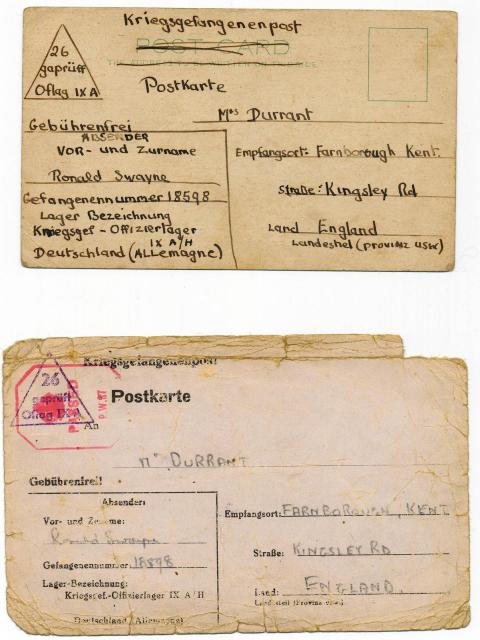 Kriegsgefangenenpost
POST CARD
26
gaprüff
Oflag IX A
Postkarte
Mrs Durrant
Gebührenfrei
ABSENDER
VOR- und Zurname
Ronald Swayne
Gefangenennummer 18598
Lager Bezeichnung
Kriegsgef- Offizierlager
IX A/H
Deutschland (Allemagne)
Empfangsort: Farnborough Kent.
Straße: Kingsley Rd
Land England
Landesteil (provinz usw)
Kriegsgefangenenpost
26
geprüft
Oflag IX A
PASSED
P.W.
Postkarte
An
DURRANT
Gebührenfrei!
Absender:
Vor- und Zuname:
Ronald Swayne
Gefangenennummer: 18598
Lager-Bezeichnung:
Kriegsgef.-Offizierlager IX A/H
Deutschland (Allemagne)
Empfangsort: FARNBOROUGH, KENT
Straße: KINGSLEY RD
Land: ENGLAND.
Landesteil (Provinz usw.)